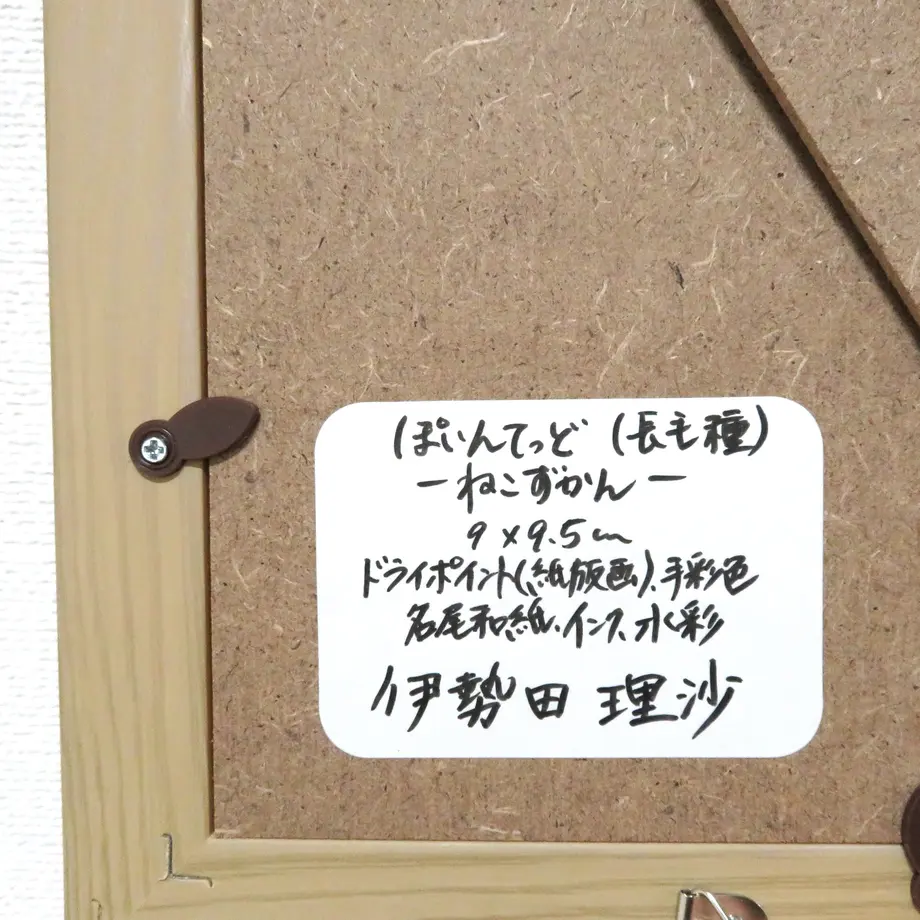 ぽいんてっど (長毛種)
ーねこずかんー
9×9.5cm
ドライポイント(紙版画)、手彩色
名尾和紙、インク、水彩
伊勢田 理沙